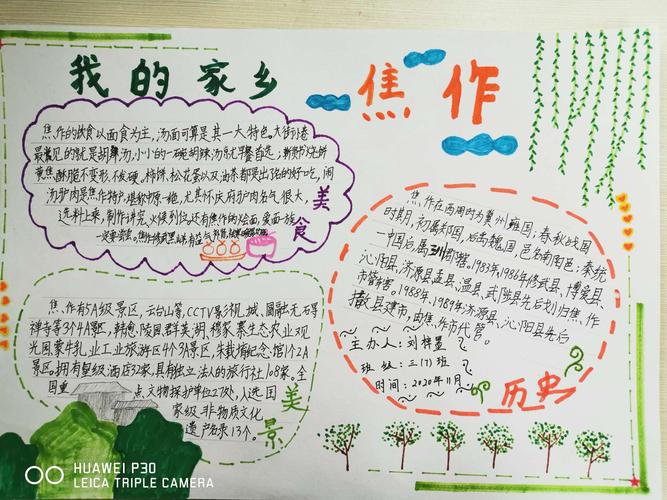 我的家乡
焦作
焦作的饮食以面食为主,汤面可算是其一大特色。大街小巷
最常见的就是胡辣汤,小小的一碗胡辣汤成了早餐首选;新
黄焦酥脆不变形,不皮硬。柿饼、松花蛋以及油茶都是出了名的好吃,闹
汤驴肉是焦作特产,堪称中原一绝,尤其怀庆府驴肉名气很大,
选料上乘,制作讲究,火候到位,还有焦作的烩面,
一定要尝尝。
美食
焦作有5A级景区,云台山等,CCTV影视城、圆融无石
禅寺等3个4A景区,韩愈陵园,群英湖、穆家寨生态农业观
光园,蒙牛乳业工业旅游区4个3A景区,朱载堉纪念馆1个2A
景区。拥有星级酒店32家,具有独立法人的旅行社108家。全
国重点文物保护单位27处,入选国
家级非物质文化
遗产名录13个。
美景
焦作在西周时为冀州雍国;春秋战国
时期,初属郑国,后为魏国,邑名南阳邑;秦统
一中国后属三川郡辖。1983年,1986年修武县、博爱县、
沁阳县、济源县、孟县、温县、武陟县先后划归焦作
市管辖。1988年、1989年济源县、沁阳县先后
撤县建市,由焦作市代管。
主办人:刘梓昱
班级:三(7)班
时间:2020年11月
历史
HUAWEI P30
LEICA TRIPLE CAMERA